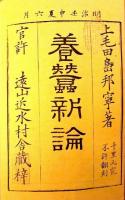 明治壬申夏六月
上毛田島邦寧著
養蠶新論
千里必究
不許翻刻
官許 遠山近水村舎藏梓